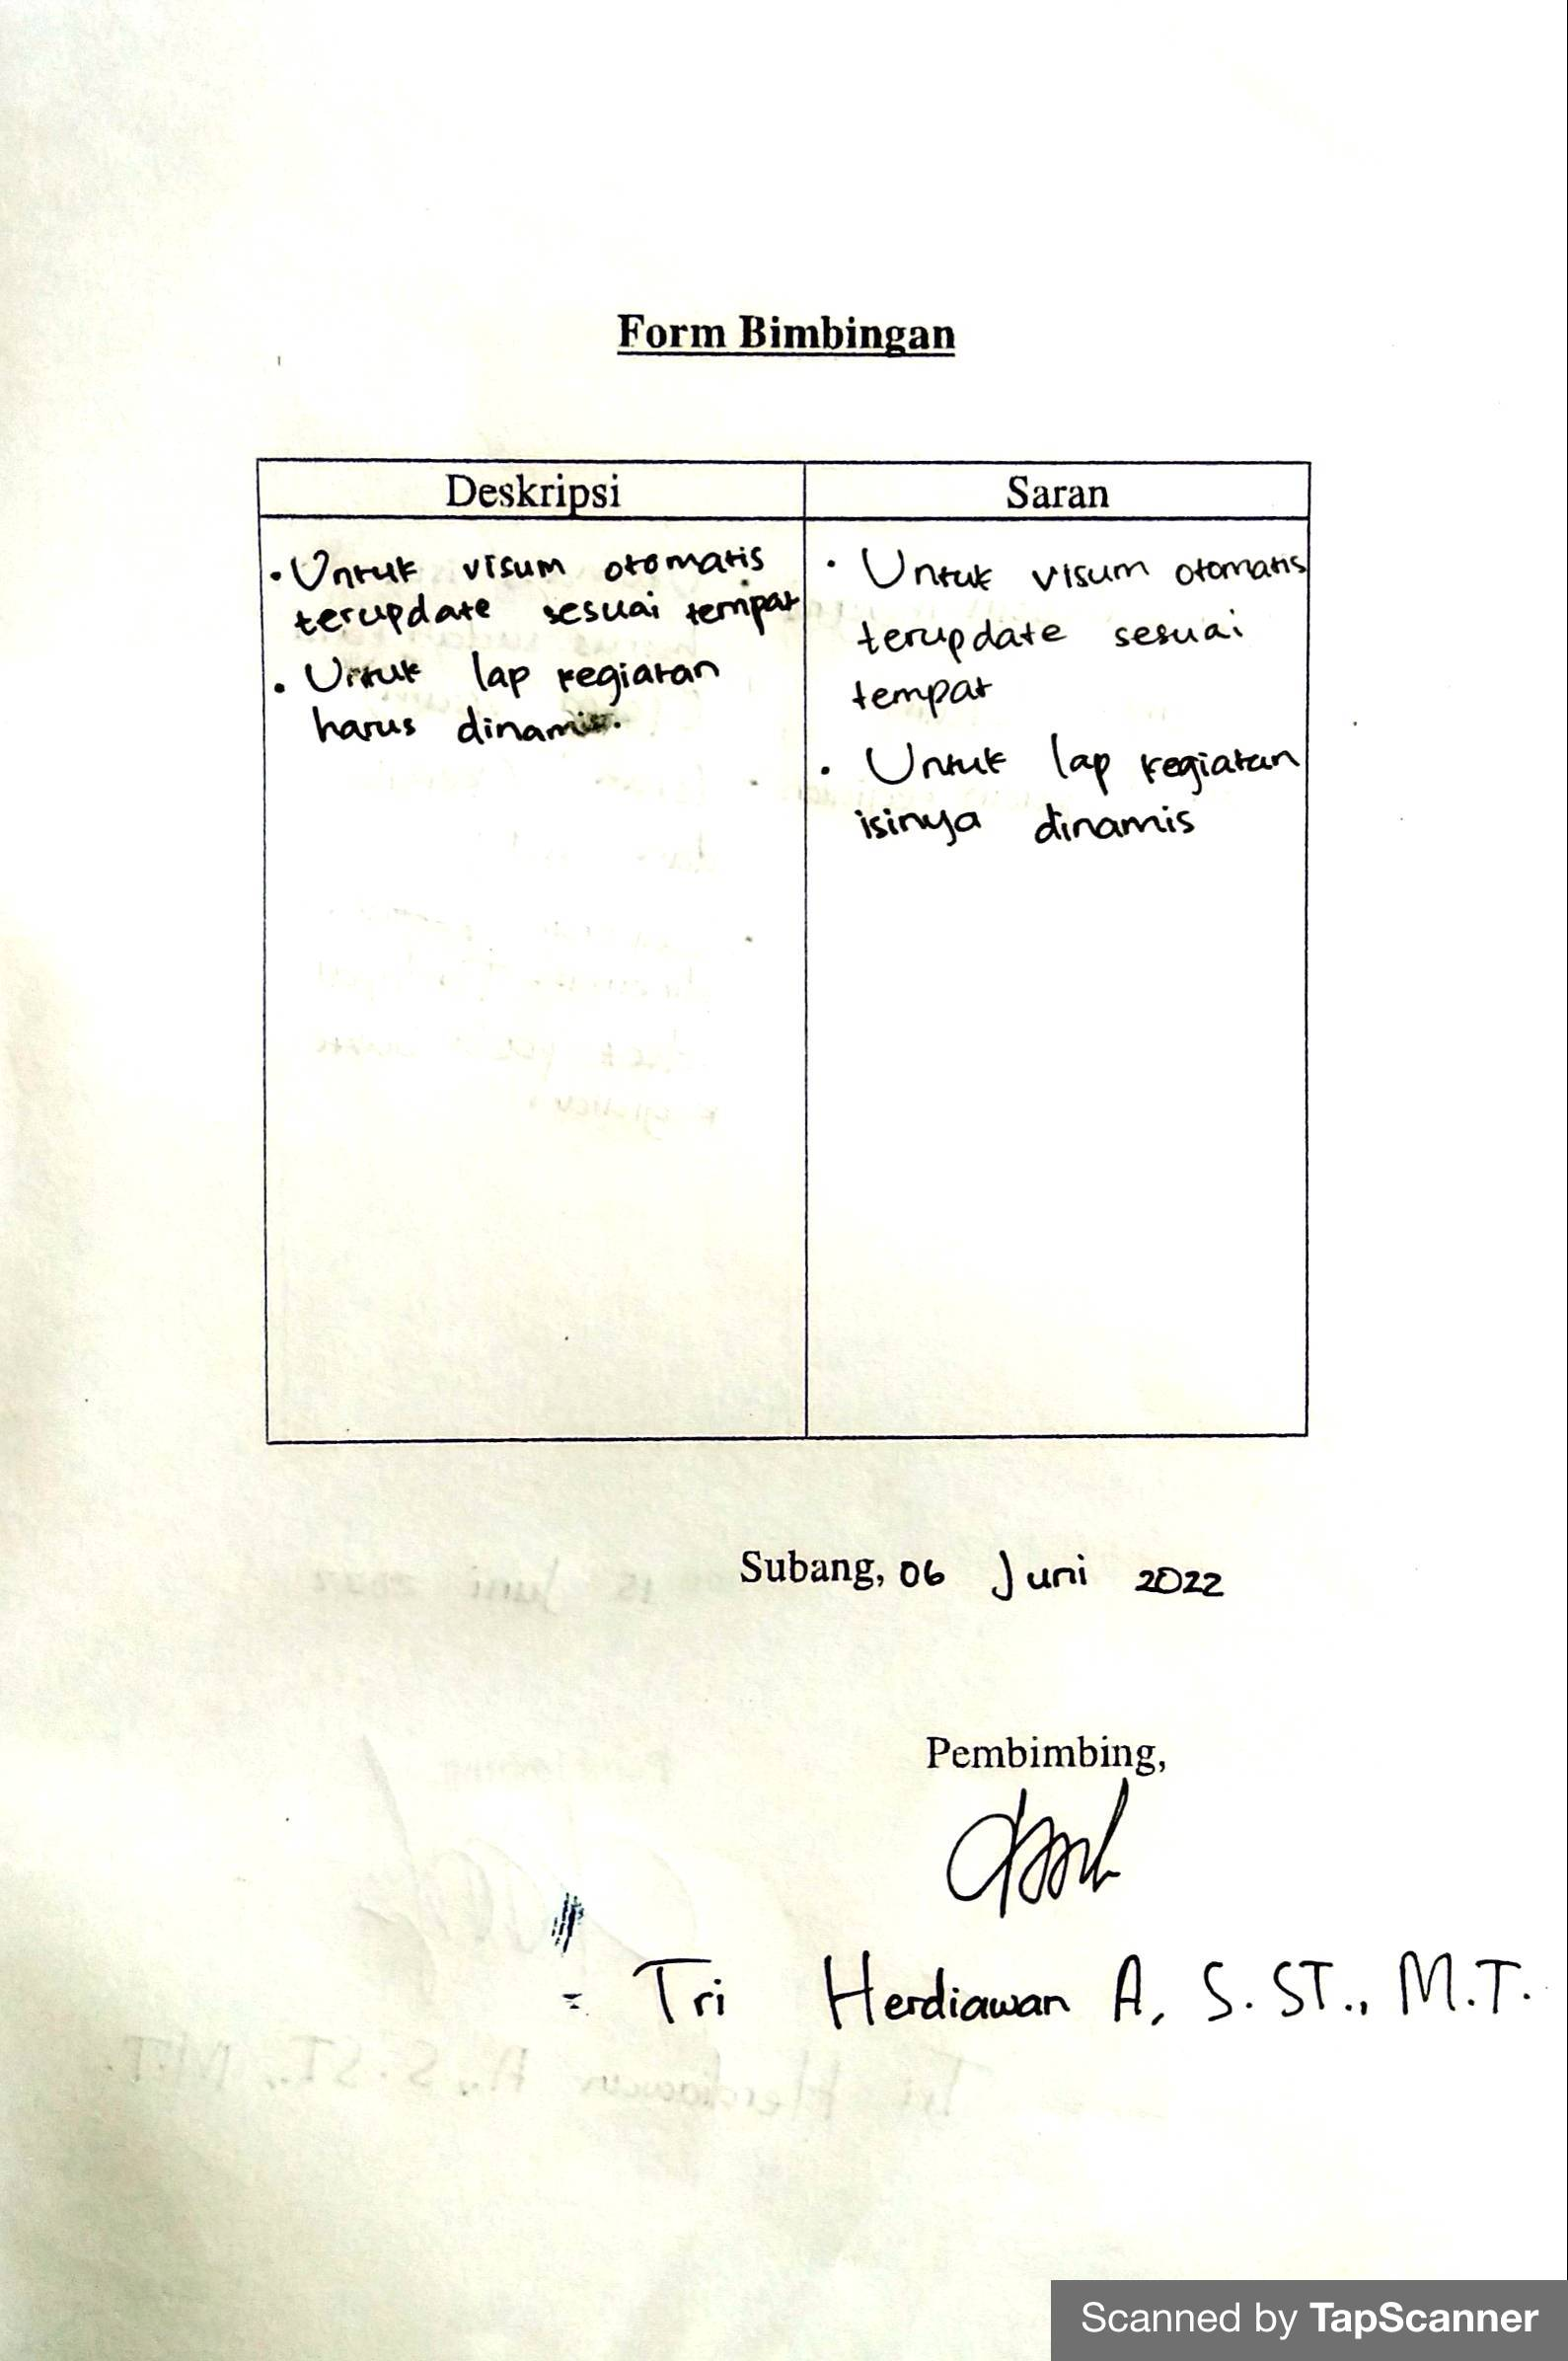 Form Bimbingan
Deskripsi
Saran
• Untuk visum otomatis
terupdate sesuai tempat
• Untuk lap kegiatan
harus dinamis.
• Untuk visum otomatis
terupdate sesuai
tempat
• Untuk lap kegiatan
isinya dinamis
Subang, 06 Juni 2022
Pembimbing,
Tri Herdiawan A, S.ST., M.T.
Scanned by TapScanner